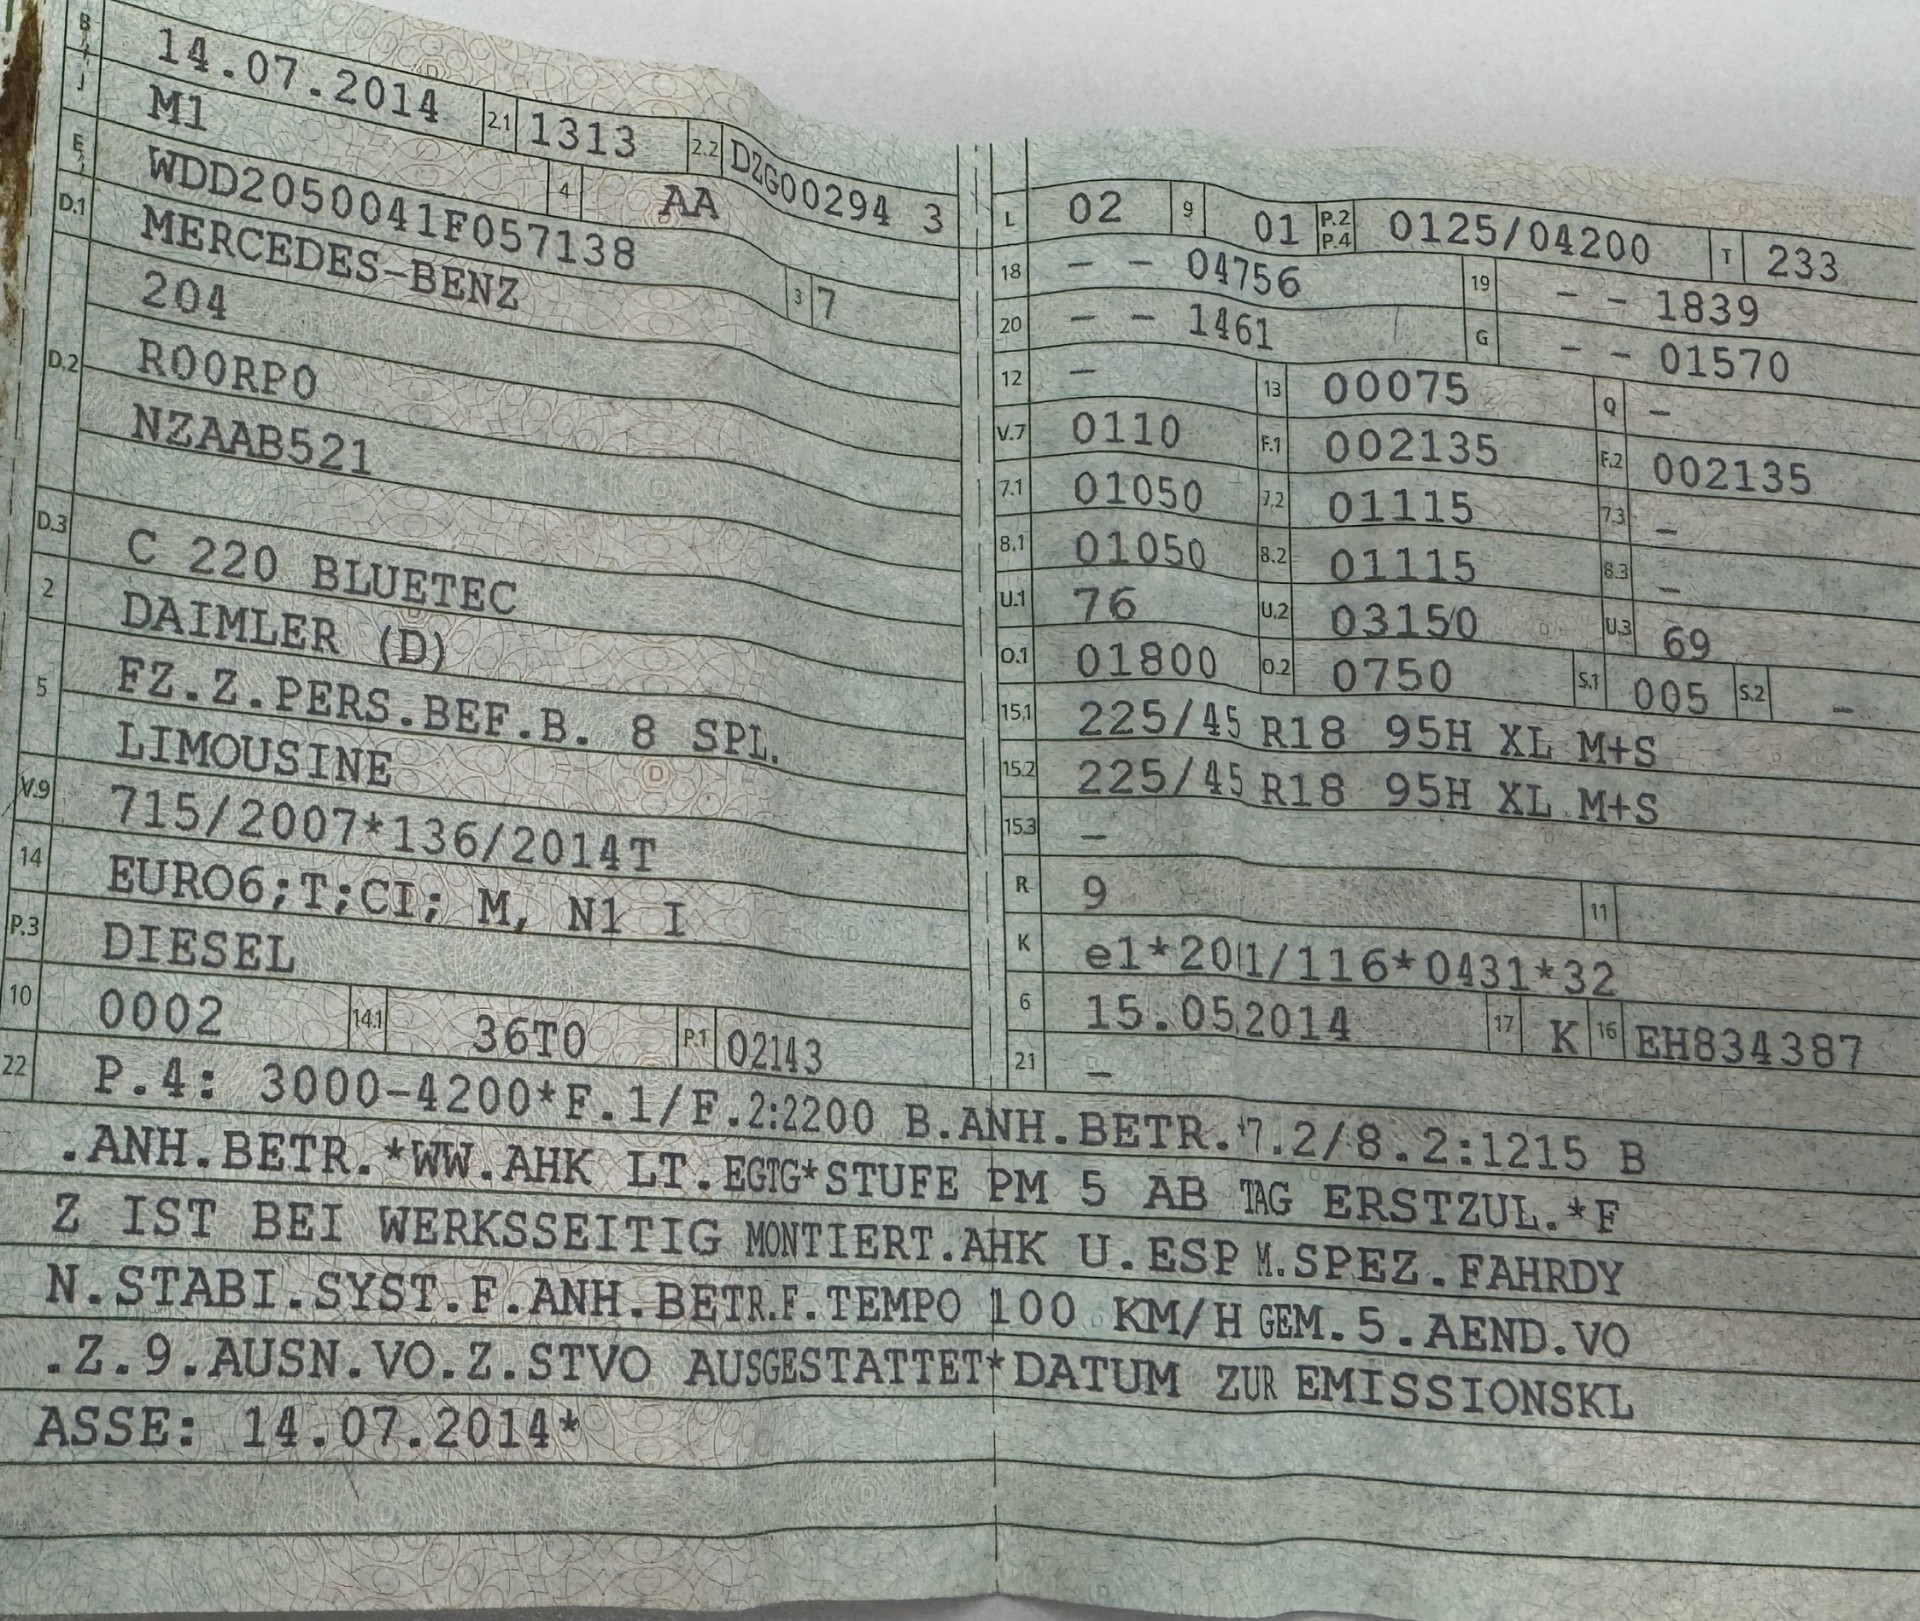 B 14.07.2014 2.1 1313 2.2 DZG00294 3
J M1 4 AA
E WDD2050041F057138 3 7
D.1 MERCEDES-BENZ
D.2 204
R00RP0
NZAAB521
D.3 C 220 BLUETEC
2 DAIMLER (D)
5 FZ.Z.PERS.BEF.B. 8 SPL.
LIMOUSINE
V.9 715/2007*136/2014T
14 EURO6;T;CI; M, N1 I
P.3 DIESEL
10 0002 14.1 36T0 P.1 02143
L 02 9 01 P.2 P.4 0125/04200 T 233
18 - - 04756 19 - - 1839
20 - - 1461 G - - 01570
12 - 13 00075 Q -
V.7 0110 F.1 002135 F.2 002135
7.1 01050 7.2 01115 7.3 -
8.1 01050 8.2 01115 8.3 -
U.1 76 U.2 03150 U.3 69
O.1 01800 O.2 0750 S.1 005 S.2 -
15.1 225/45 R18 95H XL M+S
15.2 225/45 R18 95H XL M+S
15.3 -
R 9 11
K e1*2001/116*0431*32
6 15.05.2014 17 K 16 EH834387
21 -
22 P.4: 3000-4200*F.1/F.2:2200 B.ANH.BETR.*7.2/8.2:1215 B
.ANH.BETR.*WW.AHK LT.EGTG*STUFE PM 5 AB TAG ERSTZUL.*F
Z IST BEI WERKSSEITIG MONTIERT.AHK U.ESP M.SPEZ.FAHRDY
N.STABI.SYST.F.ANH.BETR.F.TEMPO 100 KM/H GEM.5.AEND.VO
.Z.9.AUSN.VO.Z.STVO AUSGESTATTET*DATUM ZUR EMISSIONSKL
ASSE: 14.07.2014*